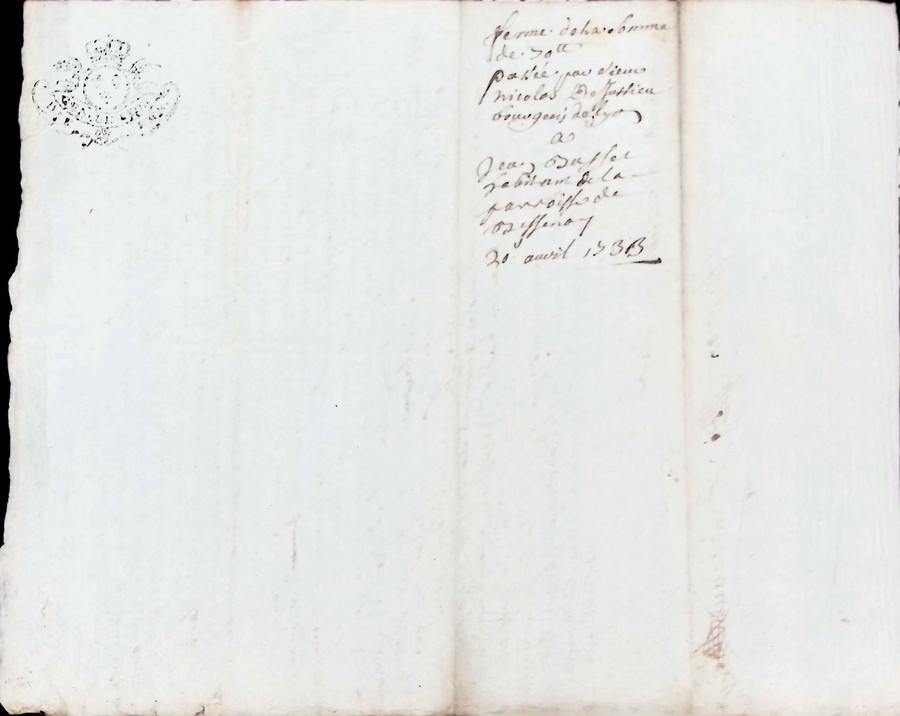 ferme de la somme
de 70tt
passée par sieur
nicolas De Jussieu
bourgeois de lyon
a
Jean Basset
habitant de la
parroisse de
Bessenay
20 avril 1733